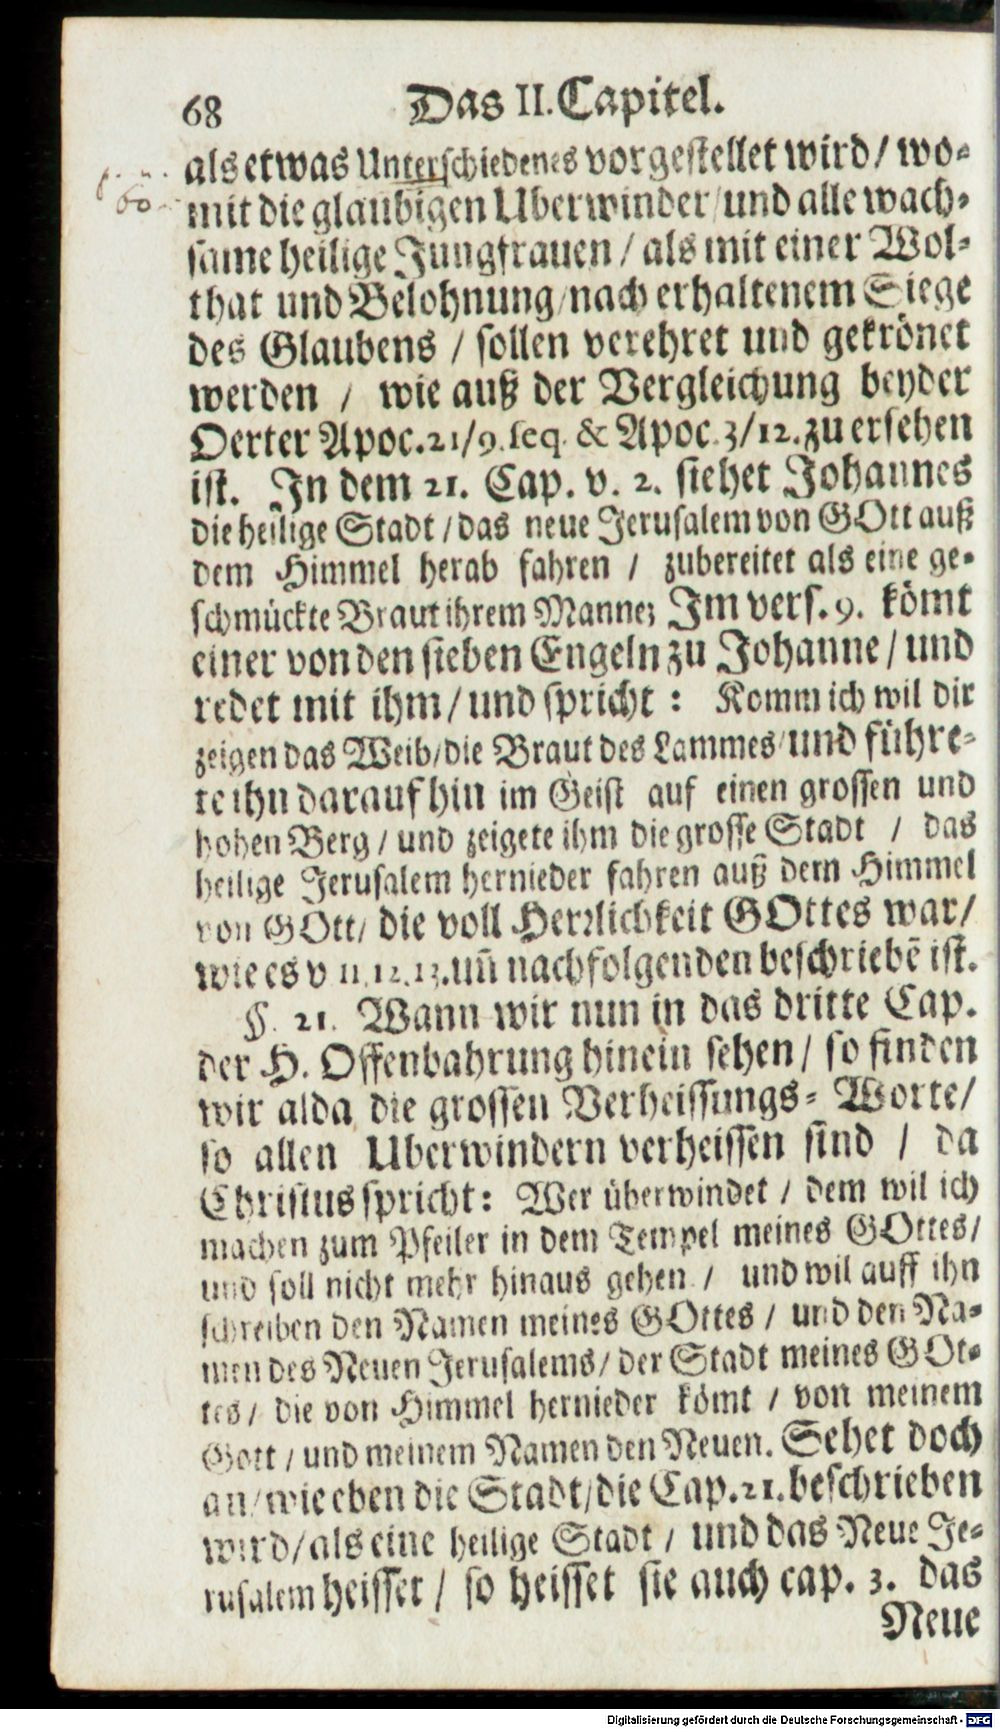 68 Das II. Capitel.
als etwas Unterschiedenes vorgestellet wird / wo-
60
mit die glaubigen Uberwinder / und alle wach-
same heilige Jungfrauen / als mit einer Wol-
that und Belohnung / nach erhaltenem Siege
des Glaubens / sollen verehret und gekrönet
werden / wie auß der Vergleichung beyder
Oerter Apoc. 21/9. seq. & Apoc. 3/12. zu ersehen
ist. In dem 21. Cap. v. 2. siehet Johannes
die heilige Stadt / das neue Jerusalem von GOtt auß
dem Himmel herab fahren / zubereitet als eine ge-
schmückte Braut ihrem Manne; Im vers. 9. kömt
einer von den sieben Engeln zu Johanne / und
redet mit ihm / und spricht : Komm ich wil dir
zeigen das Weib / die Braut des Lammes / und führe-
te ihn darauf hin im Geist auf einen grossen und
hohen Berg / und zeigete ihm die grosse Stadt / das
heilige Jerusalem hernieder fahren auß dem Himmel
von GOtt / die voll Herrlichkeit GOttes war /
wie es v 11. 12. 13. uñ nachfolgenden beschriebẽ ist.
§. 21. Wann wir nun in das dritte Cap.
der H. Offenbahrung hinein sehen / so finden
wir alda die grossen Verheissungs- Worte /
so allen Uberwindern verheissen sind / da
Christus spricht : Wer überwindet / dem wil ich
machen zum Pfeiler in dem Tempel meines GOttes /
und soll nicht mehr hinaus gehen / und wil auff ihn
schreiben den Namen meines GOttes / und den Na-
men des Neuen Jerusalems / der Stadt meines GOt-
tes / die von Himmel hernieder kömt / von meinem
Gott / und meinem Namen den Neuen. Sehet doch
an / wie eben die Stadt / die Cap. 21. beschrieben
wird / als eine heilige Stadt / und das Neue Je-
rusalem heisset / so heisset sie auch cap. 3. das
Neue
Digitalisierung gefördert durch die Deutsche Forschungsgemeinschaft - DFG